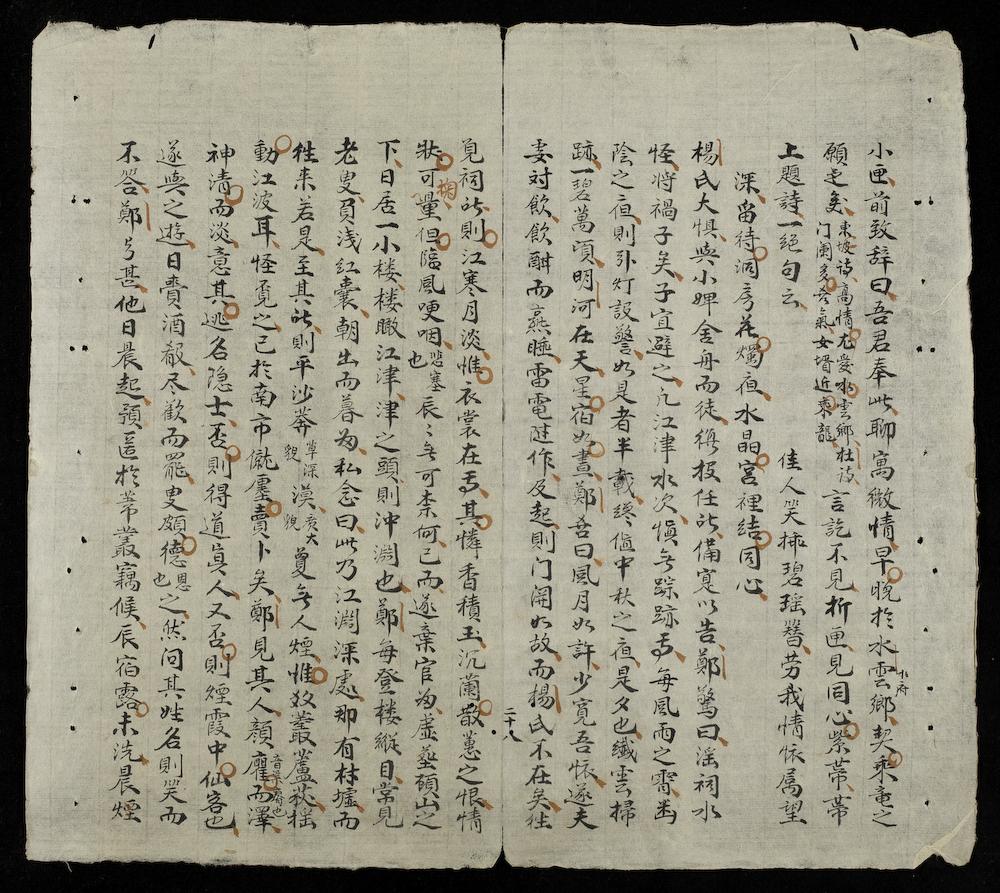 小匣前致辞曰吾君奉此聊寓微情早晚於水雲鄉水府契乘竜之
願足矣東坡诗高情尤爱水雲鄉杜诗门阑多喜氣女婿近乘龍言訖不見折匣見同心紫帶帶
上題詩一絕句云 佳人笑插碧瑶簪劳我情怀属望
深畄待洞房花燭夜水晶宮裡結同心
楊氏大惧與小婢舍舟而徒徑报任所備寔以告鄭驚曰滛祠水
怪将禍子矣子宜避之凡江津水次愼無踪跡焉每風雨之霄幽
陰之夜則引灯設警如是者半載終値中秋之夜是夕也纖雲掃
跡一碧萬頃明河在天星宿如晝鄭喜曰風月如許少寬吾怀遂夫
妻对飲飲酣而熹睡雷電陡作及起則门闭如故而楊氏不在矣徃
二十八
覓祠所則江寒月淡惟衣裳在焉其憐香積玉沉蘭散蕙之恨情
狀可掬量但臨風哽咽悲塞也辰辰無可柰何已而遂棄官爲虛葬碩山之
下日居一小楼楼瞰江津津之頭則沖淵也鄭每登楼縱目常見
老叟負浅紅囊朝出而暮为私念曰此乃江淵深處那有村墟而
徃来若是至其所則平沙莽草深貌漠广大貌夐無人煙惟數叢蘆荻摇
動江波耳怪覔之已於南市僦廛賣卜矣鄭見其人顔癯音衢瘠也而澤
神清而淡意其逃名隐士否則得道眞人又否則煙霞中仙客也
遂與之遊日費酒殽尽歡而罷叟頗德恩也之然问其姓名則笑而
不答鄭亐甚他日晨起預匿於茅叢竊候辰宿露未洗晨煙